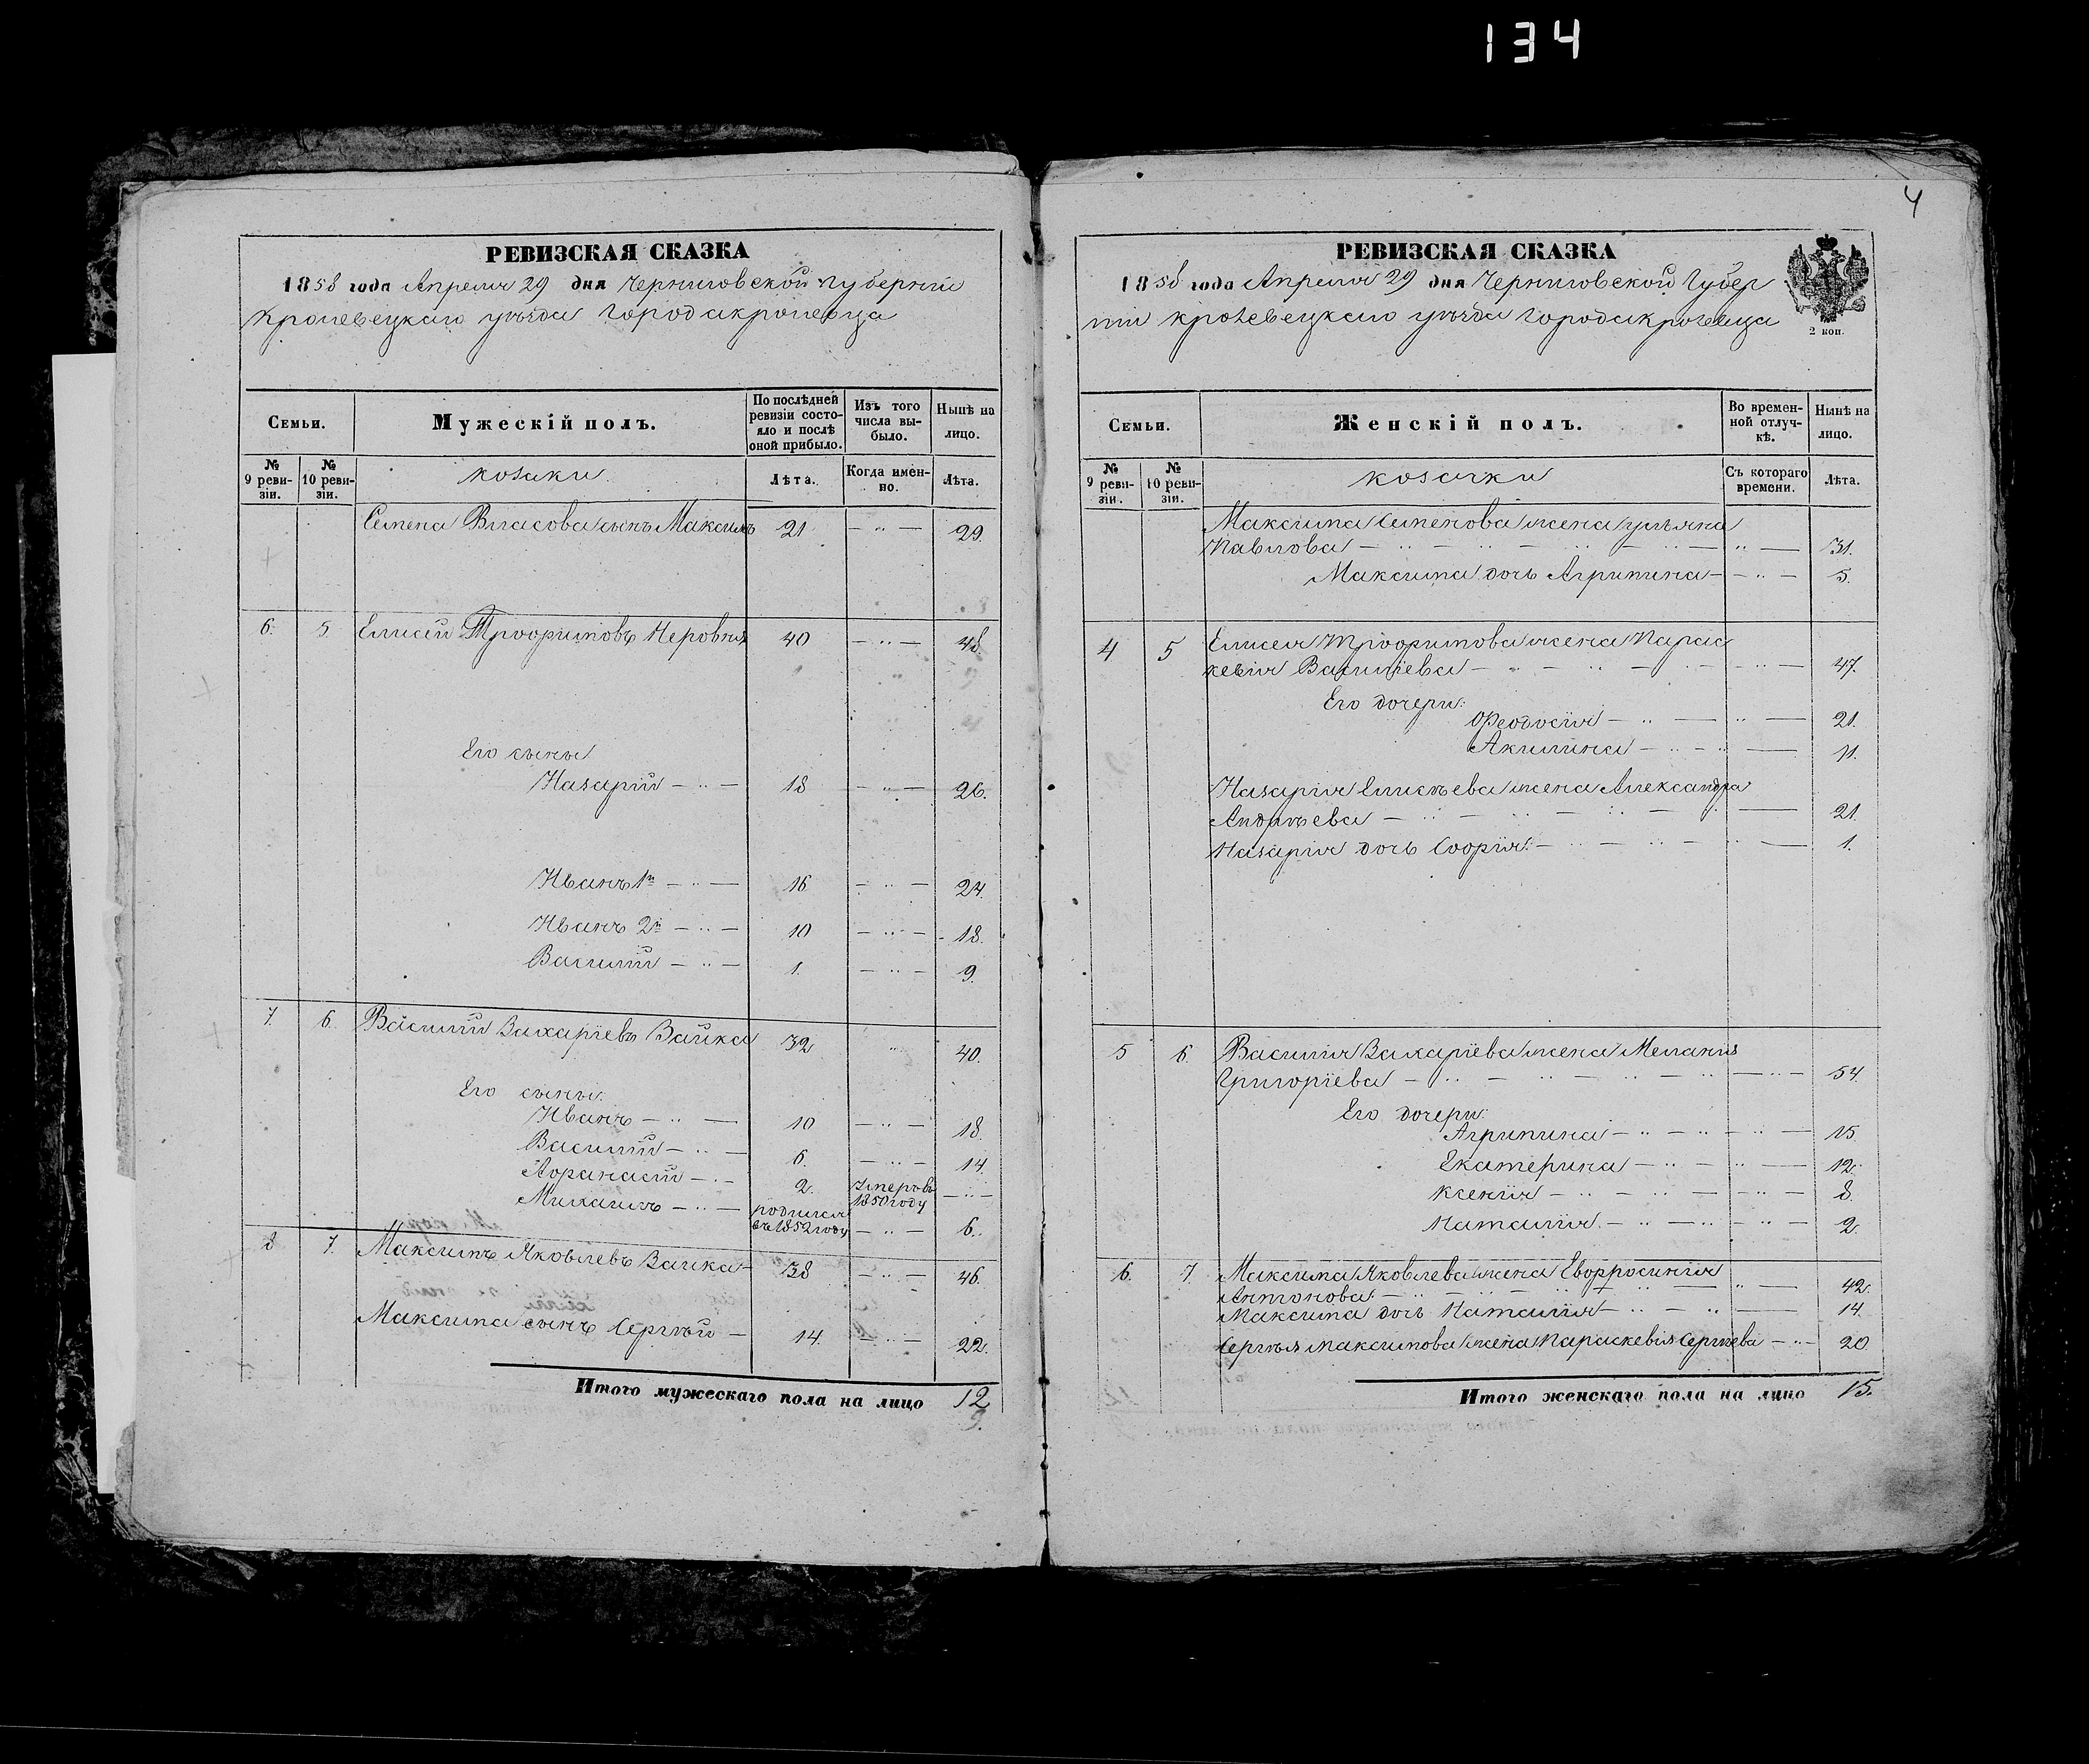 134
4
РЕВИЗСКАЯ СКАЗКА
1858 года Апреля 29 дня Черниговской Губернии
Кролевецкаго уѣзда Города Кролевца
Семьи.
Мужескій полъ.
По послѣдней ревизіи состояло и послѣ оной прибыло.
Изъ того числа выбыло.
Нынѣ на лицо.
№ 9 ревизіи.
№ 10 ревизіи.
козаки
Лѣта.
Когда именно.
Лѣта.
Семена Власова сынъ Максимъ 21 — " — 29.
6. 5. Елисей Трофимовъ Неровня 40 — " — 48.
Его сыны
Назарій — " — 18 — " — 26.
Иванъ 1й — " — 16 — " — 24.
Иванъ 2й — " — 10 — " — 18.
Василій — " — 1. — " — 9.
7. 6. Василій Захаріевъ Заика 32 " 40.
Его сыны:
Иванъ — " — 10 — " — 18.
Василій — " — 6. — " — 14.
Афанасій — " — 2. Умеръ въ 1850 году — " —
Михаилъ — " — родился въ 1852 году — " — 6.
8 7. Максимъ Яковлевъ Заика — 38 — " — 46.
Максима сынъ Сергѣй — 14. — " — 22.
Итого мужескаго пола на лицо 12
9.
РЕВИЗСКАЯ СКАЗКА
2 коп.
1858 года Апреля 29 дня Черниговской Губер
нии Кролевецкаго уѣзда Города Кролевца
Семьи.
Женскій полъ.
Во временной отлучкѣ.
Нынѣ на лицо.
№ 9 ревизіи.
№ 10 ревизіи.
козачки
Съ котораго времени.
Лѣта.
Максима Семенова жена Ульяна
Павлова — " — 31.
Максима дочь Агрипина — " — 5.
4 5 Елисея Трофимова жена Парас
кевія Василіева — " — 47.
Его дочери:
Феодосія — " — 21.
Акилина — " — 11.
Назарія Елисѣева жена Александра
Андрѣева — " — 21.
Назарія дочь Софія. — " — 1.
5 6. Василия Захаріева жена Меланія
Григоріева — " — 54.
Его дочери:
Агрипина — " — 15.
Екатерина — " — 12.
Ксенія — " — 8.
Наталія. — " — 2.
6. 7. Максима Яковлева жена Евфросинія
Антонова. — " — 42.
Максима дочь Наталия — " — 14.
Сергѣя Максимова жена Параскевія Сергѣева — " — 20
Итого женскаго пола на лицо 15.